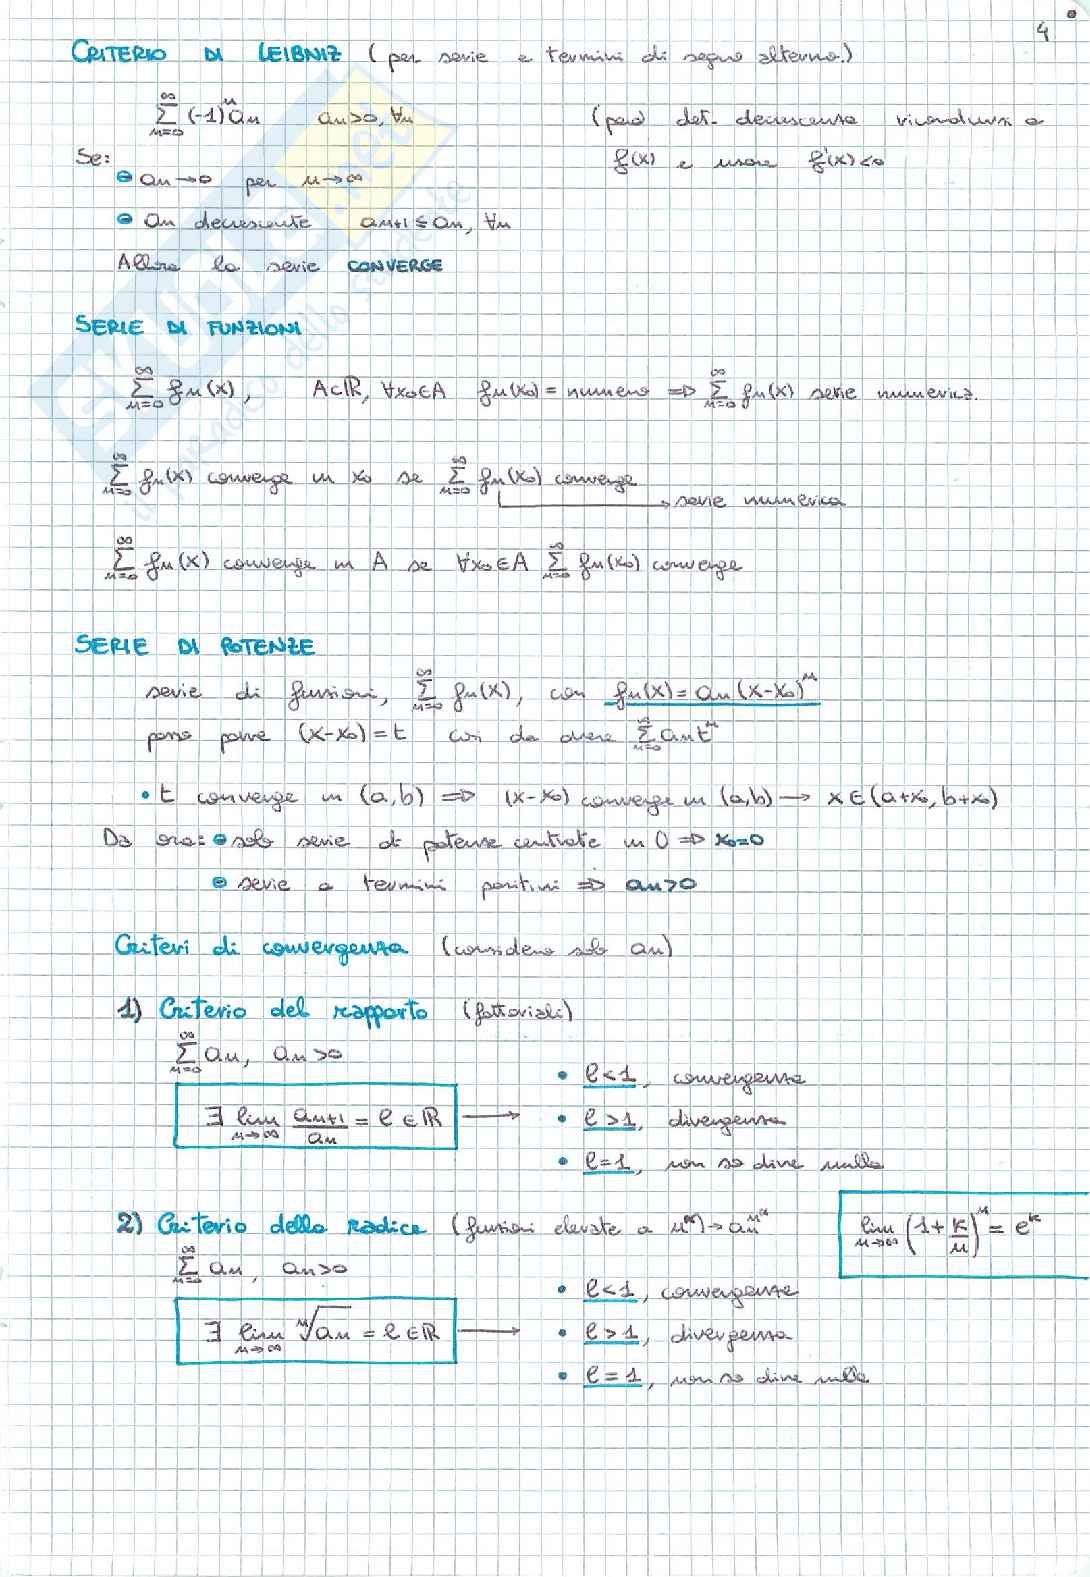 4
CRITERIO DI LEIBNIZ (per serie a termini di segno alterno)
∑_{n=0}^{∞} (-1)^n an   an>0, ∀n   (per det. decrescenza ricondursi a
Se:   f(x) e usare f'(x)<0
an→0 per n→∞
an decrescente   an+1 ≤ an, ∀n
Allora la serie CONVERGE
SERIE DI FUNZIONI
∑_{n=0}^{∞} fn(x),   A⊂ℝ, ∀x0∈A   fn(x0) = numero ⇒ ∑_{n=0}^{∞} fn(x) serie numerica.
∑_{n=0}^{∞} fn(x) converge in x0 se ∑_{n=0}^{∞} fn(x0) converge
→ serie numerica
∑_{n=0}^{∞} fn(x) converge in A se ∀x0∈A ∑_{n=0}^{∞} fn(x0) converge
SERIE DI POTENZE
serie di funzioni, ∑_{n=0}^{∞} fn(x), con fn(x) = an(x-x0)^n
posso porre (x-x0) = t così da avere ∑_{n=0}^{∞} an t^n
• t converge in (a,b) ⇒ (x-x0) converge in (a,b) → x∈(a+x0, b+x0)
Da ora: solo serie di potenze centrate in 0 ⇒ x0=0
serie a termini positivi ⇒ an>0
Criteri di convergenza (considero solo an)
1) Criterio del rapporto (fattoriali)
∑_{n=0}^{∞} an, an>0
• l<1, convergenza
∃ lim_{n→∞} an+1/an = l ∈ℝ →
• l>1, divergenza
• l=1, non so dire nulla
2) Criterio della radice (funzioni elevate a n^α) → an^{n^α}
lim_{n→∞} (1+k/n)^n = e^k
∑_{n=0}^{∞} an, an>0
• l<1, convergenza
∃ lim_{n→∞} ⁿ√an = l ∈ℝ →
• l>1, divergenza
• l=1, non so dire nulla